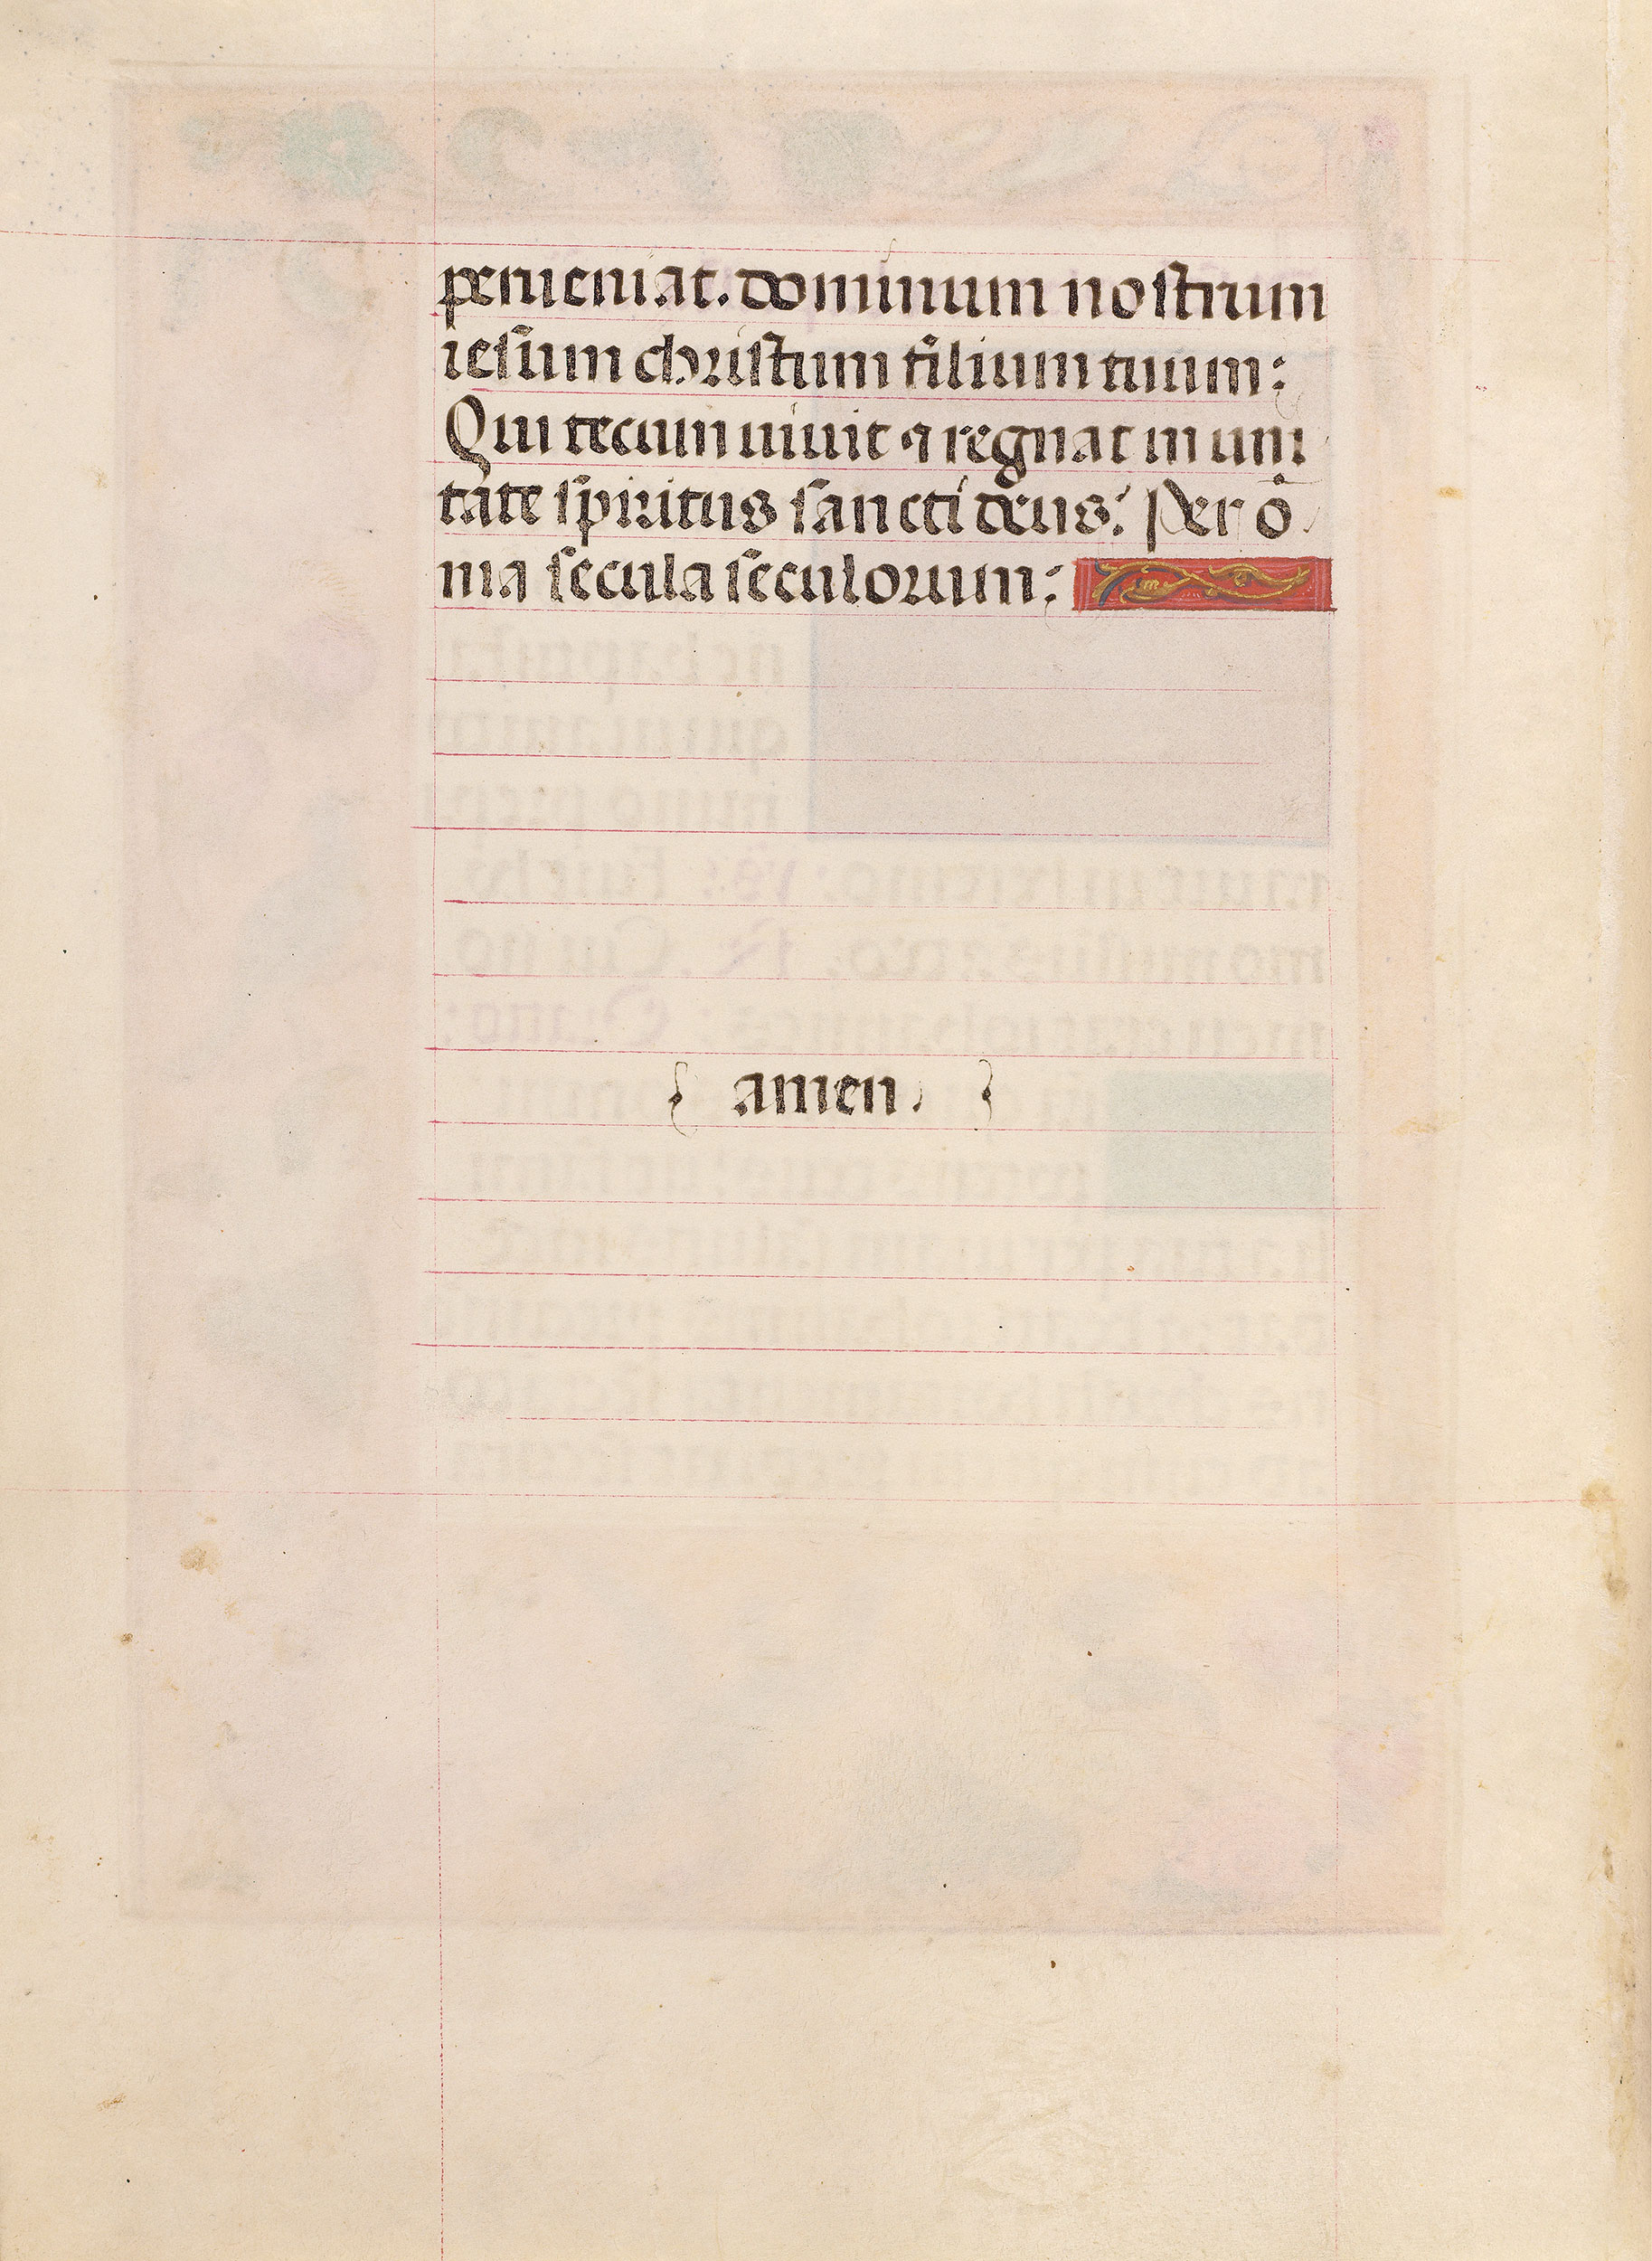 perueniat. dominum nostrum
iesum christum filium tuum:
Qui tecum uiuit ⁊ regnat in uni
tate spiritus sancti deus: Per ō
nia secula seculorum:
amen.